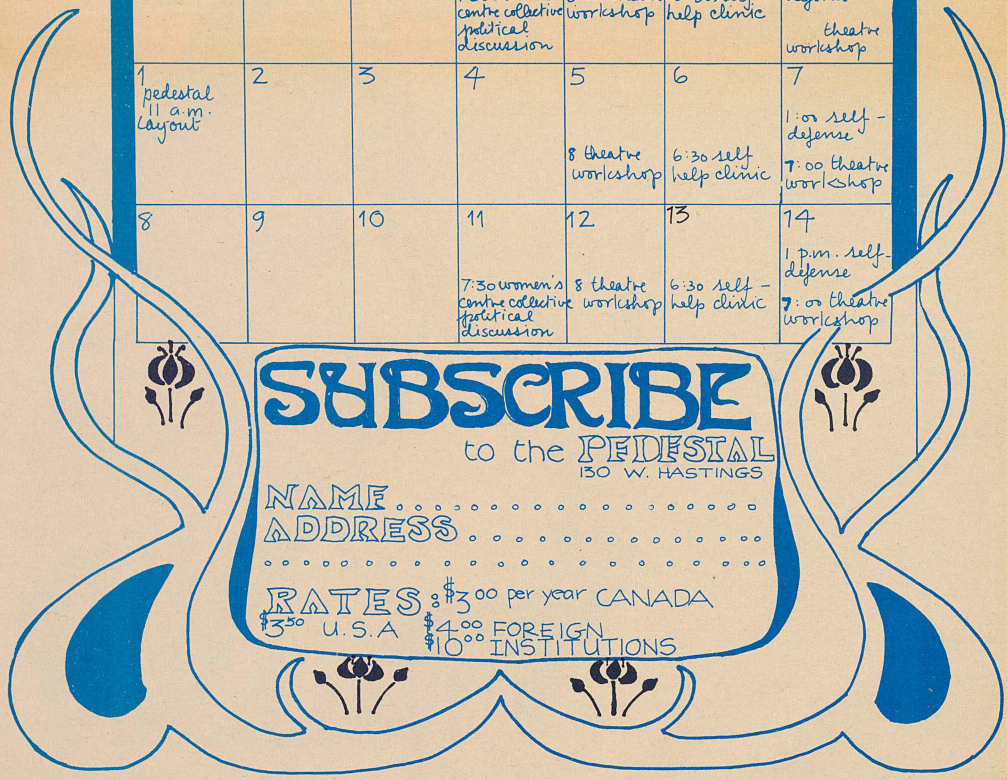 centre collective
political
discussion
workshop
help clinic
theatre
workshop
1
pedestal
11 a.m.
layout
2
3
4
5
8 theatre
workshop
6
6:30 self
help clinic
7
1:00 self-
defense
7:00 theatre
workshop
8
9
10
11
7:30 women's
centre collective
political
discussion
12
8 theatre
workshop
13
6:30 self-
help clinic
14
1 p.m. self-
defense
7:00 theatre
workshop
SUBSCRIBE
to the PEDESTAL
130 W. HASTINGS
NAME..................
ADDRESS................
........................
RATES: $3.00 per year CANADA
$3.50 U.S.A $4.00 FOREIGN
$10.00 INSTITUTIONS